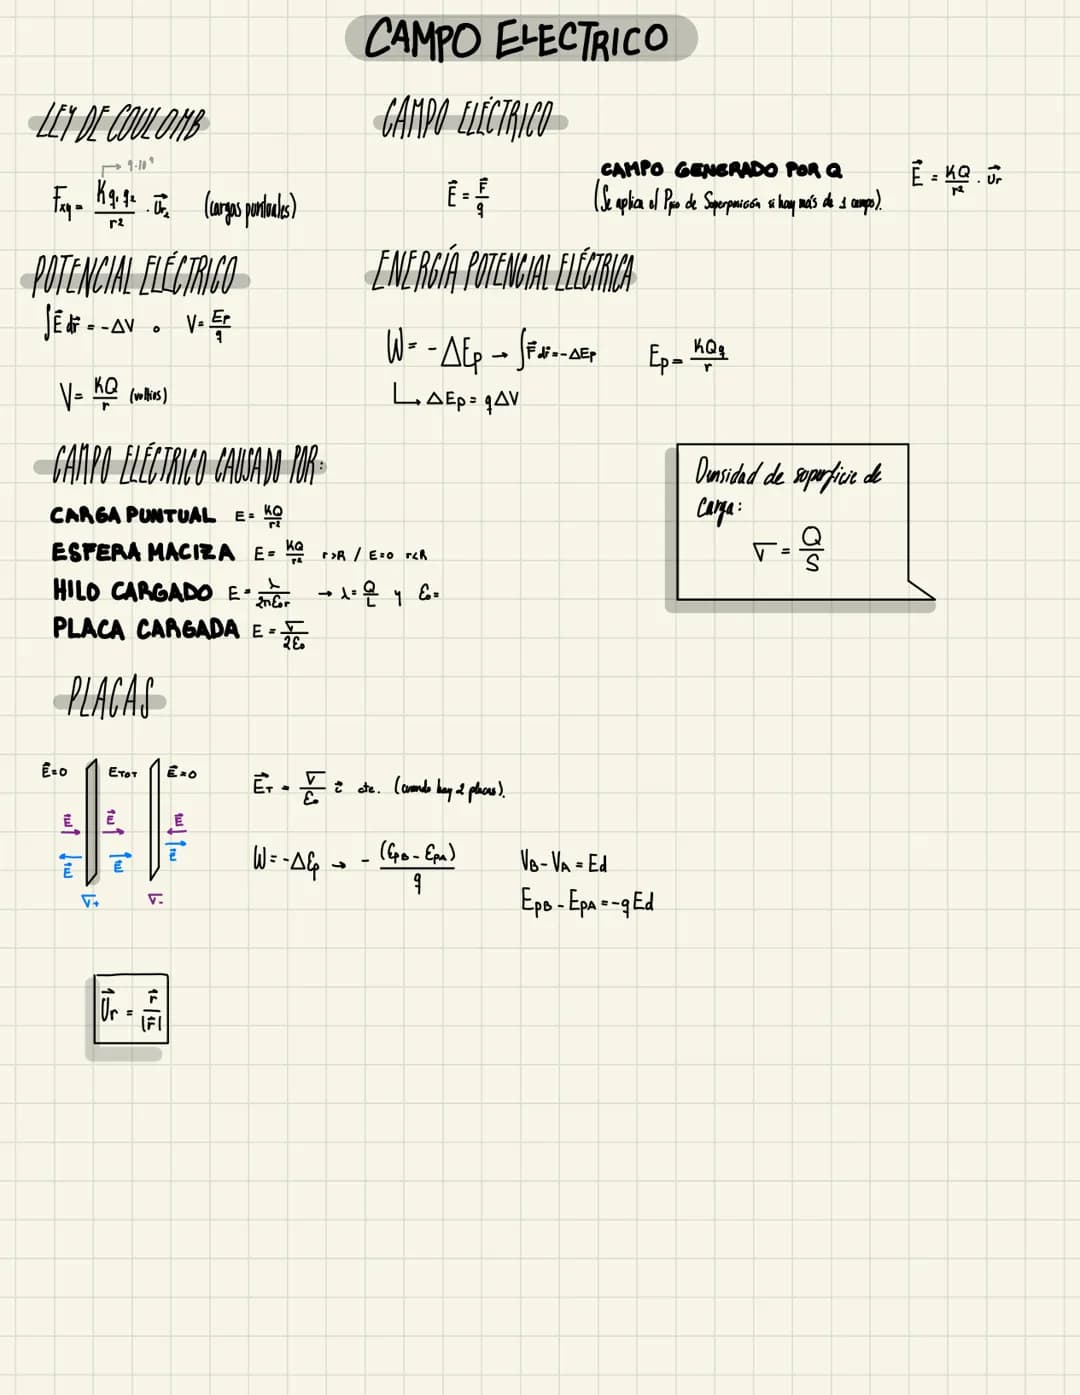 CAMPO ELECTRICO
LEY DE COULOMB
→ 9·10⁹
Fxy = K q₁ q₂ / r² · U⃗r₂ (cargas puntuales)
CAMPO ELÉCTRICO
E⃗ = F⃗ / q
CAMPO GENERADO POR Q
(Se aplica el Ppio de Superposición si hay más de 1 campo).
E⃗ = KQ / r² · U⃗r
POTENCIAL ELÉCTRICO
∫E⃗ dr⃗ = -ΔV o V = Ep / q
V = KQ / r (voltios)
ENERGÍA POTENCIAL ELÉCTRICA
W = -ΔEp → ∫F⃗ dr⃗ = -ΔEp
↳ ΔEp = qΔV
Ep = KQq / r
CAMPO ELÉCTRICO CAUSADO POR:
CARGA PUNTUAL E = KQ / r²
ESFERA MACIZA E = KQ / r² r>R / E=0 r<R
HILO CARGADO E = λ / 2πε₀r → λ = Q / L y ε₀ =
PLACA CARGADA E = σ / 2ε₀
Densidad de superficie de
carga:
σ = Q / S
PLACAS
E⃗=0 ETOT E⃗=0
E⃗ E⃗ E⃗
E⃗ E⃗ E⃗
σ+ σ-
E⃗T = σ / ε₀ cte. (cuando hay 2 placas).
W = -ΔEp → - (EpB - EpA) / q
VB - VA = Ed
EpB - EpA = -qEd
U⃗r = r⃗ / |r⃗|